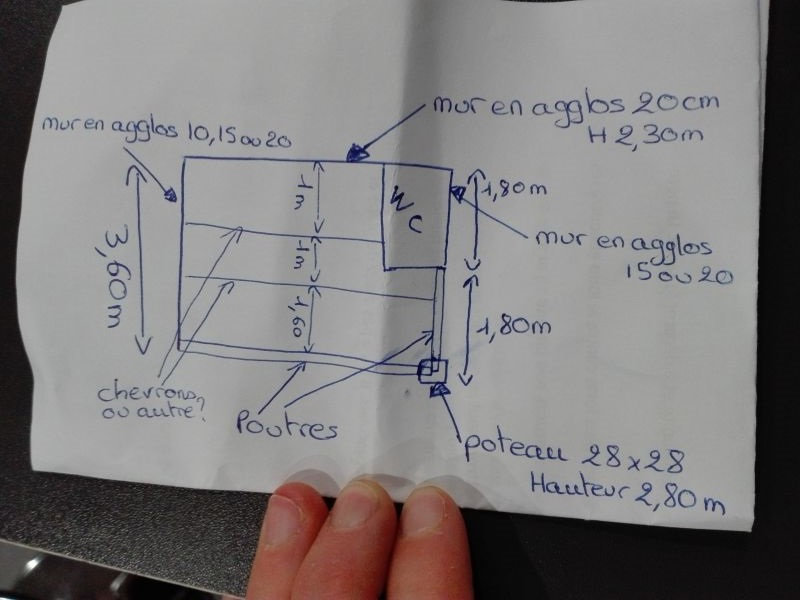 mur en agglos 20cm
H 2,30m
mur en agglos 10,15 ou 20
1m
WC
1,80m
mur en agglos
15 ou 20
3,60m
1m
1,60
1,80m
chevrons
ou autre?
Poutres
poteau 28x28
Hauteur 2,80m